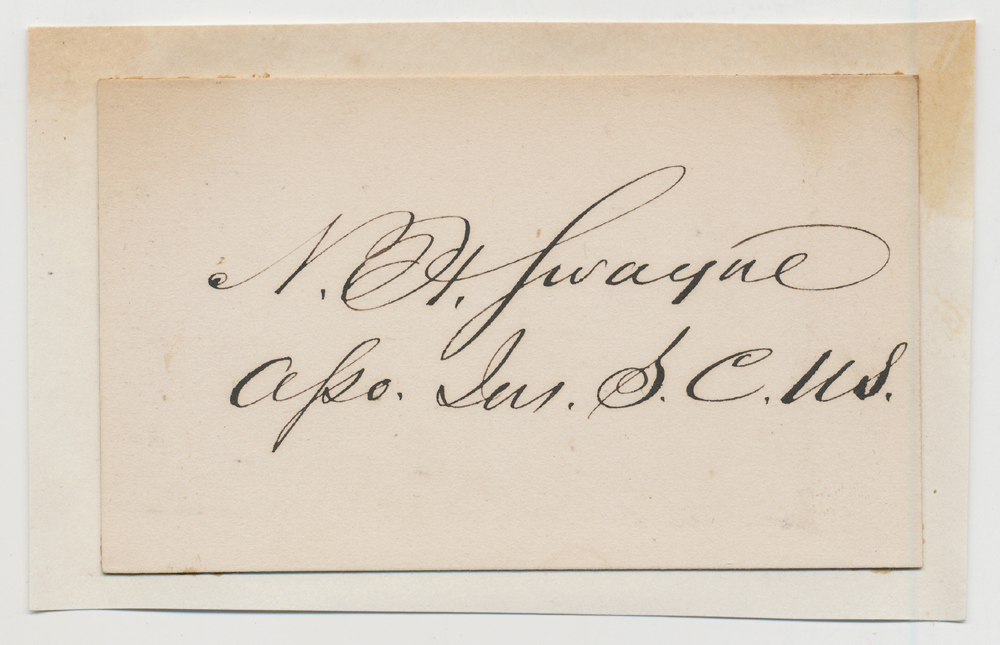 N. H. Swayne
Asso. Jus. S. C. U S.